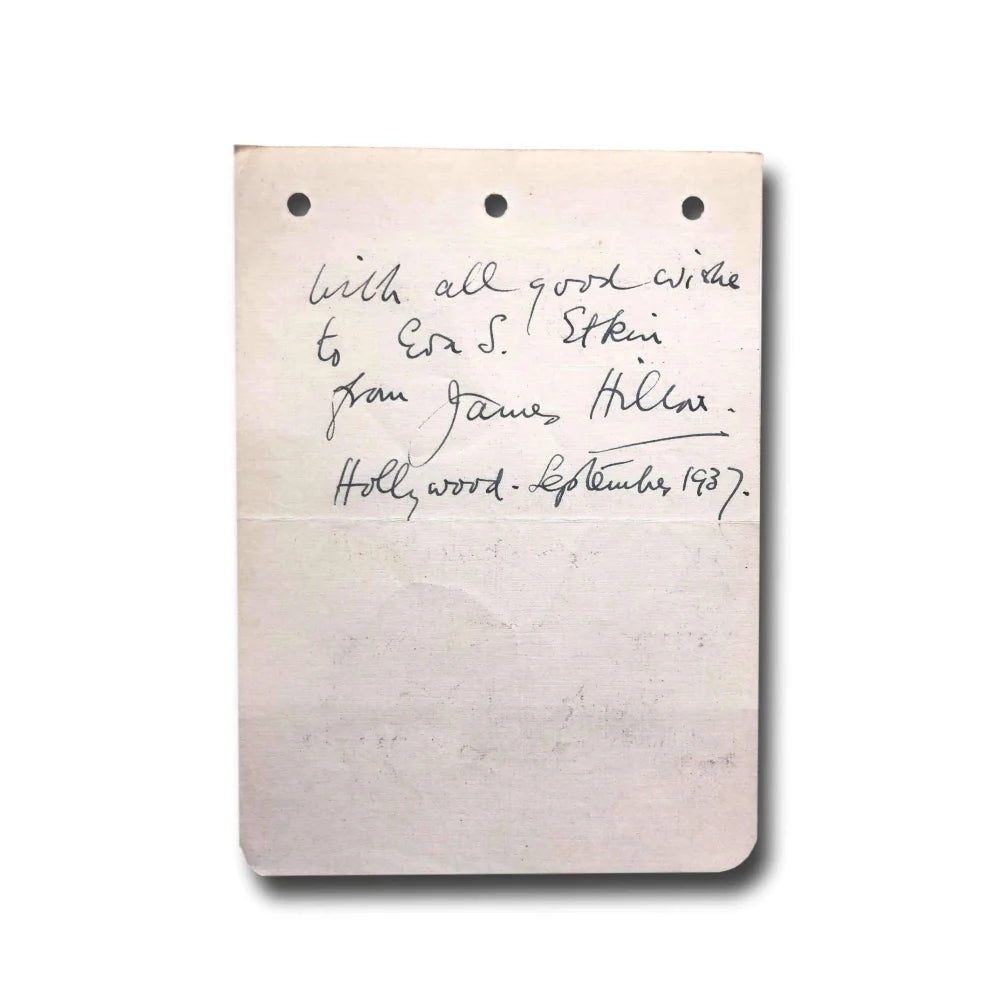 With all good wishes
to Eva S. Etkin
from James Hilton.
Hollywood. September 1937.